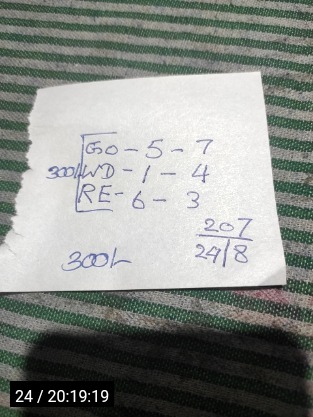 GO - 5 - 7
300/- WD - 1 - 4
RE - 6 - 3
207
300/- 24/8
24 / 20:19:19